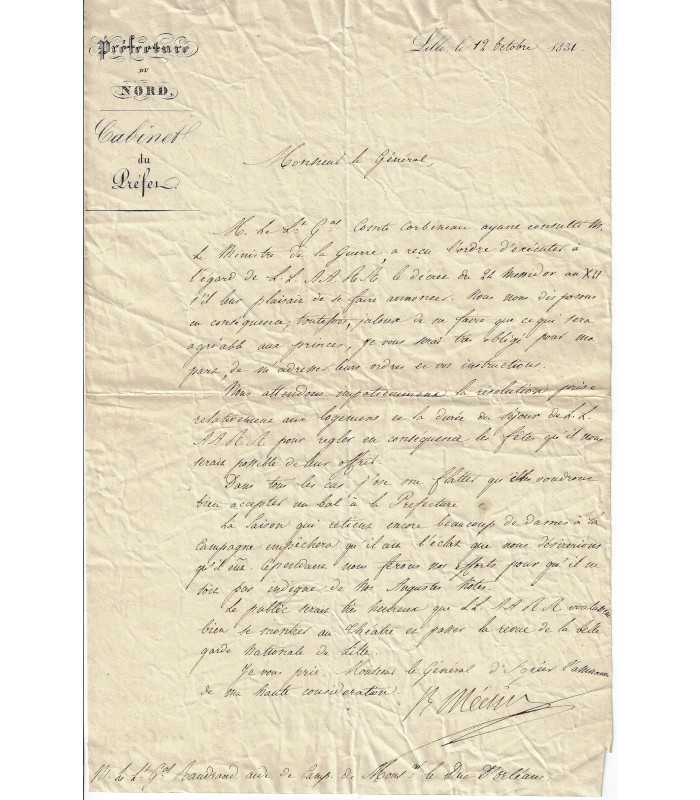 Préfecture
DU
NORD.
Cabinet
du
Préfet
Lille, le 12 Octobre 1831.
Monsieur le Général,
M. Le Lt. Gal Comte Corbineau ayant consulté M.
Le Ministre de la Guerre, a reçu l'ordre d'exécuter à
l'égard de LL. AA. RR. le décret du 24 Messidor an XII
s'il leur plaisait de se faire annoncer. Nous nous disposons
en conséquence, toutefois, jaloux de ne faire que ce qui sera
agréable aux princes, je vous serai très obligé pour ma
part, de m'adresser leurs ordres et vos instructions.
Nous attendons impatiemment la résolution prise
relativement aux logemens et la durée du séjour de LL.
AA. RR. pour régler en conséquence les fêtes qu'il nous
serait possible de leur offrir.
Dans tous les cas j'ose me flatter qu'ils voudront
bien accepter un bal à la Préfecture.
La Saison qui retient encore beaucoup de dames à la
Campagne empêchera qu'il ait l'éclat que nous désirerions
qu'il eût. Cependant nous ferons nos efforts pour qu'il ne
soit pas indigne de nos Augustes hôtes.
Le public serait très heureux que LL. AA. RR. voulussent
bien se montrer au théâtre et passer la revue de la belle
garde nationale de Lille.
Je vous prie Monsieur le Général d'agréer l'assurance
de ma haute considération.
Bn Méchin
M. Le Lt. Gal Baudrand, aide de Camp de Monsgr. le Duc D'Orléans.